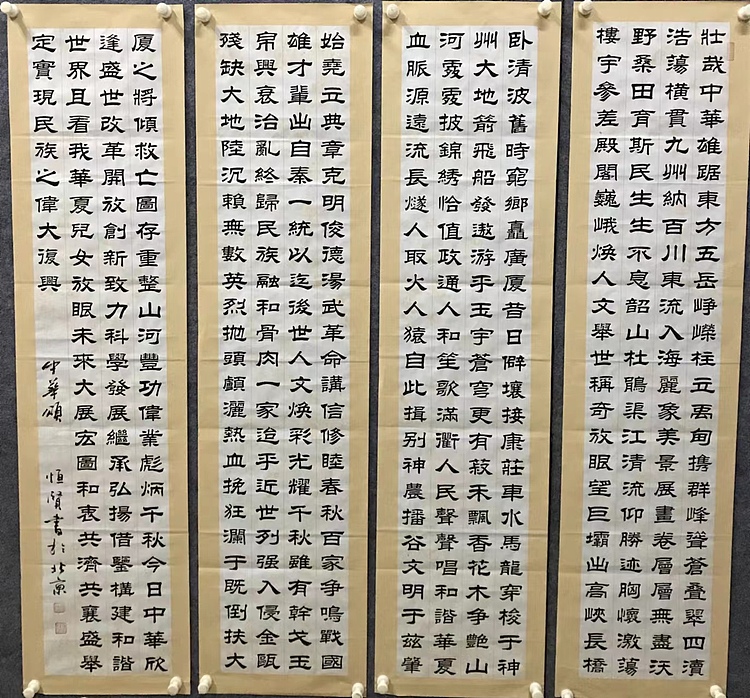 壯哉中華雄踞東方五岳崢嶸柱立禹甸携群峰聳蒼叠翠四瀆
浩蕩橫貫九州納百川東流入海麗象美景展畫卷層層無盡沃
野桑田育斯民生生不息韶山杜鵑渠江清流仰勝迹胸懷激蕩
樓宇參差殿閣巍峨煥人文舉世稱奇放眼望巨壩出高峽長橋
卧清波舊時窮鄉矗廣厦昔日僻壤接康莊車水馬龍穿梭于神
州大地箭飛船發遨游乎玉宇蒼穹更有菽禾飄香花木争艷山
河處處披錦綉恰值政通人和笙歌滿衢人民聲聲唱和諧華夏
血脈源遠流長燧人取火人猿自此揖别神農播谷文明于兹肇
始堯立典章克明俊德湯武革命講信修睦春秋百家争鳴戰國
雄才輩出自秦一統以迄後世人文煥彩光耀千秋雖有幹戈玉
帛興衰治亂終歸民族融和骨肉一家迨乎近世列强入侵金甌
殘缺大地陸沉賴無數英烈抛頭顱灑熱血挽狂瀾于既倒扶大
厦之將傾救亡圖存重整山河豐功偉業彪炳千秋今日中華欣
逢盛世改革開放創新致力科學發展繼承弘揚借鑒構建和諧
世界且看我華夏兒女放眼未來大展宏圖和衷共濟共襄盛舉
定實現民族之偉大復興
中華頌 恒賢書於北京